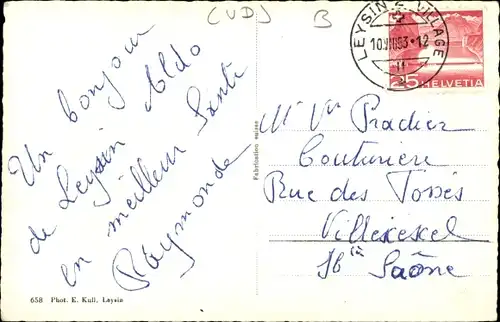 (VD)
B
LEYSIN VILLAGE
-12
25 HELVETIA
Un bonjour
de Leysin Aldo
en meilleur Santé
Raymonde
Fabrication suisse
Mr Vve Pradier
Couturière
Rue des Fossés
Villersexel
Hte Saône
658 Phot. E. Kull, Leysin